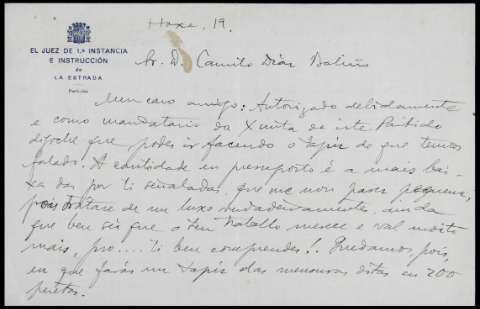 Hoxe, 19.
EL JUEZ DE 1.ª INSTANCIA
E INSTRUCCIÓN
de
LA ESTRADA
Particular
Sr. D. Camilo Díaz Baliño
Meu caro amigo: Autorizado debidamente
e como mandatario da Xunta de iste Partido
dígoche que podes ir facendo o tapiz de que temos
falado. A cantidade en presuposto é a mais bai-
xa das por ti señaladas, que me non parez pequena,
pois tratase de un luxo verdadeiramente, ainda
que ben sei que o teu traballo merece e val moito
mais, pro.... ti ben comprendes!. Quedamos, pois,
en que farás un tapiz das menores ditas en 200
pesetas.